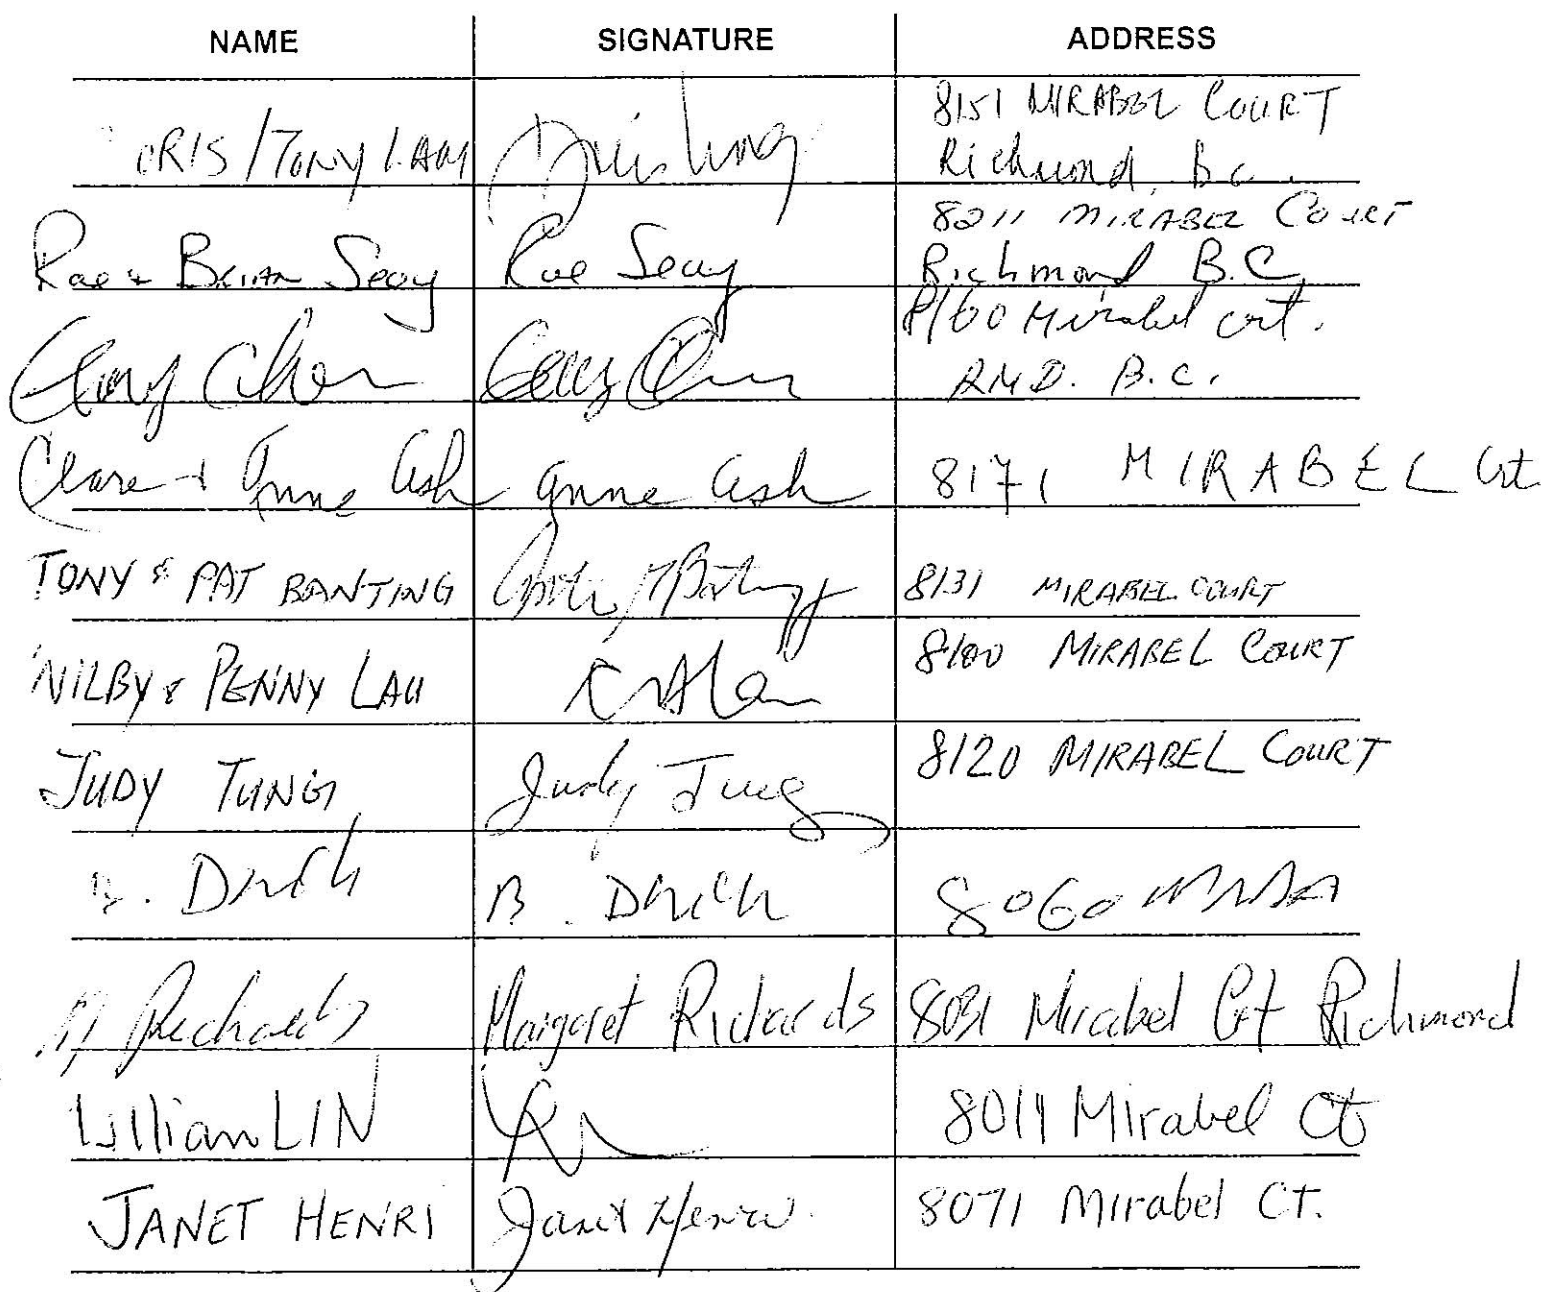 NAME SIGNATURE ADDRESS
ORIS/TONY LAM 8151 MIRABEL COURT
Richmond, B.C.
8211 MIRABEL COURT
Rae + BRIAN Seay Rae Seay Richmond B.C.
8160 Mirabel crt.
Gary Chen RMD. B.C.
Clare + Anne Ash Anne Ash 8171 MIRABEL Crt
TONY & PAT BANTING 8131 MIRABEL COURT
WILBY & PENNY LAU 8100 MIRABEL COURT
JUDY TUNG Judy Tung 8120 MIRABEL COURT
B. B. 8060
M Richards Margaret Richards 8031 Mirabel Crt Richmond
Lillian LIN 8011 Mirabel Ct
JANET HENRI Janet Henri 8071 Mirabel CT.